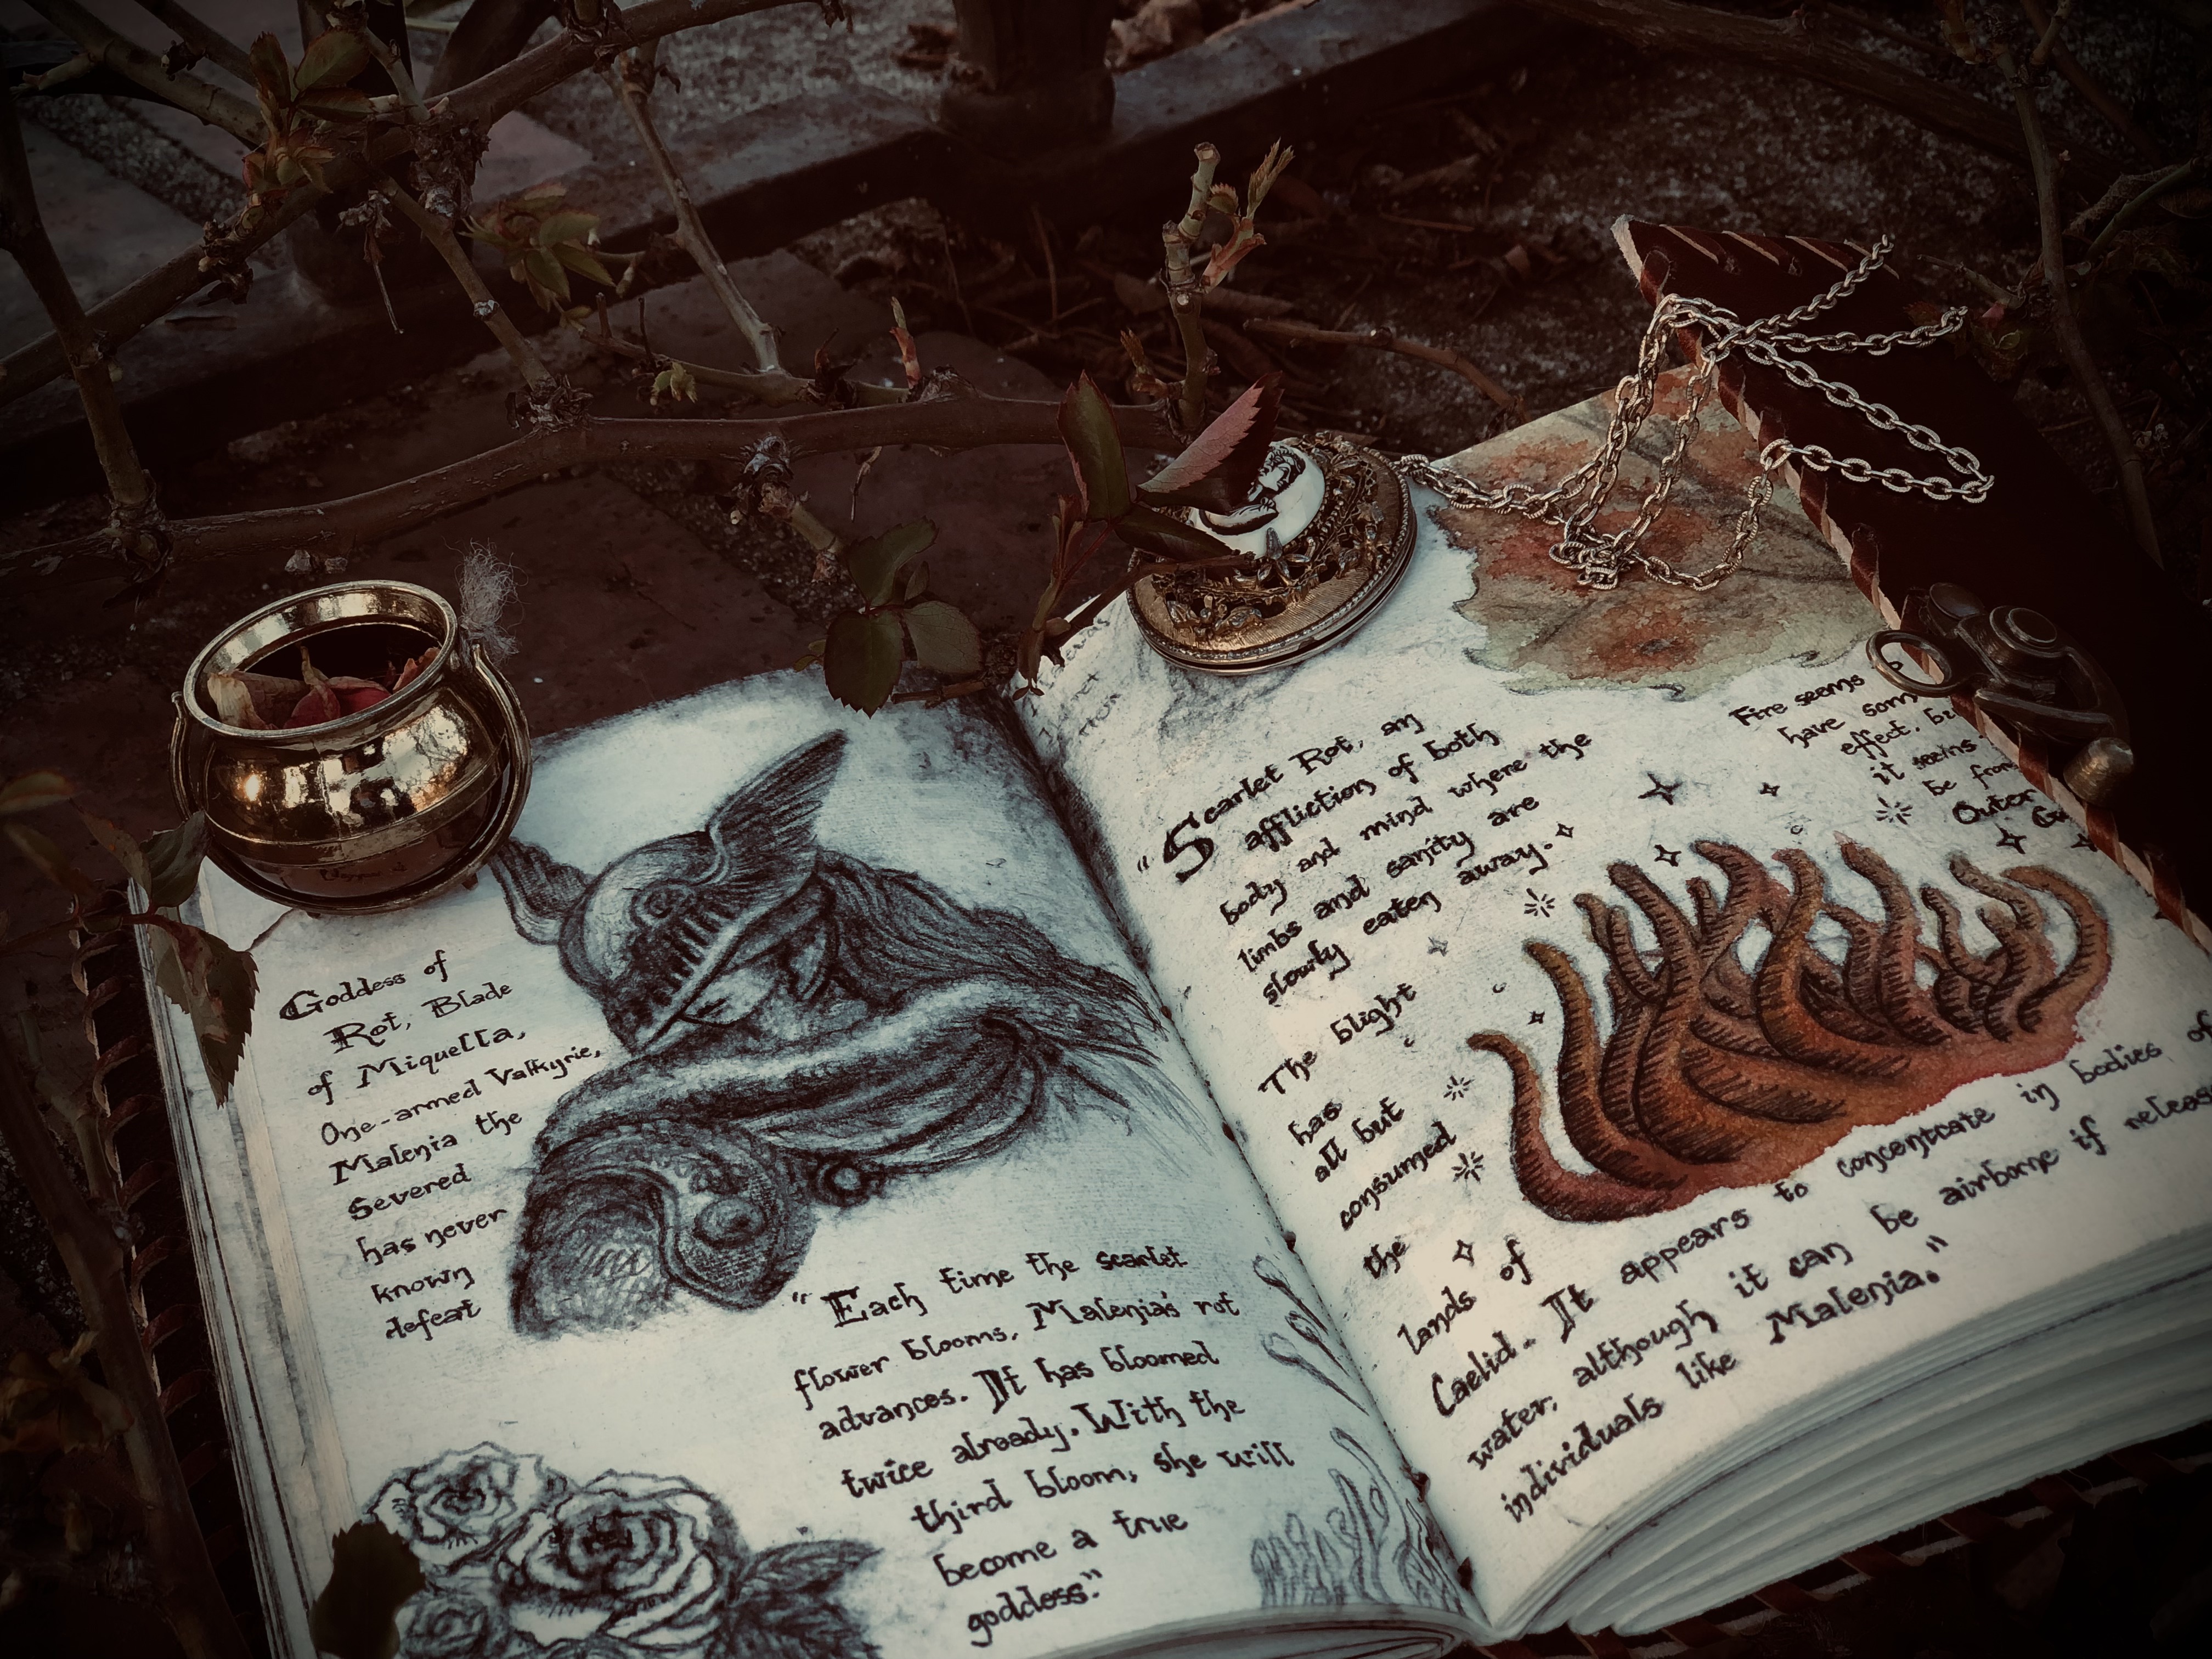 Goddess of
Rot, Blade
of Miquella,
One-armed Valkyrie,
Malenia the
Severed
has never
known
defeat
"Each time the scarlet
flower blooms, Malenia's rot
advances. It has bloomed
twice already. With the
third bloom, she will
become a true
goddess."
"Scarlet Rot, an
affliction of both
body and mind where the
limbs and sanity are
slowly eaten away.
The blight
has
all but
consumed
the
lands of
Caelid. It appears to concentrate in bodies of
water, although it can be airborne if
individuals like Malenia."
Fire seems
have
effect,
it seems
be
Outer